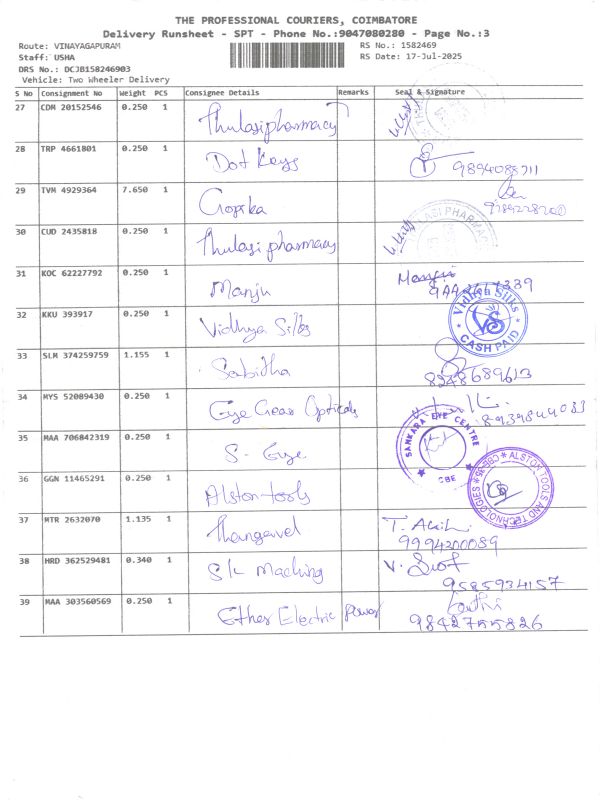 THE PROFESSIONAL COURIERS, COIMBATORE
Delivery Runsheet - SPT - Phone No.:9047080280 - Page No.:3
Route: VINAYAGAPURAM RS No.: 1582469
Staff: USHA RS Date: 17-Jul-2025
DRS No.: DCJB158246903
Vehicle: Two Wheeler Delivery
S No Consignment No Weight PCS Consignee Details Remarks Seal & Signature
27 CDM 20152546 0.250 1 Thulasi pharmacy
28 TRP 4661801 0.250 1 Dot Keys
29 TVM 4929364 7.650 1 Gopika
30 CUD 2435818 0.250 1 Thulasi pharmacy
31 KOC 62227792 0.250 1 Manju
32 KKU 393917 0.250 1 Vidhya Silks Vidhya Silks CASH PAID
33 SLM 374259759 1.155 1 Sabitha 8248689613
34 MYS 52089430 0.250 1 Eye Gear Opticals 8939844083
35 MAA 706842319 0.250 1 S- Eye SANKARA EYE CENTRE CBE
36 GGN 11465291 0.250 1 Alston tools ALSTOK TOOLS AND TECHNOLOGIES CBE-35
37 MTR 2632070 1.135 1 Thangavel 9994200089
38 HRD 362529481 0.340 1 9585934157
39 MAA 303560569 0.250 1 Ether Electric Power 9842755826